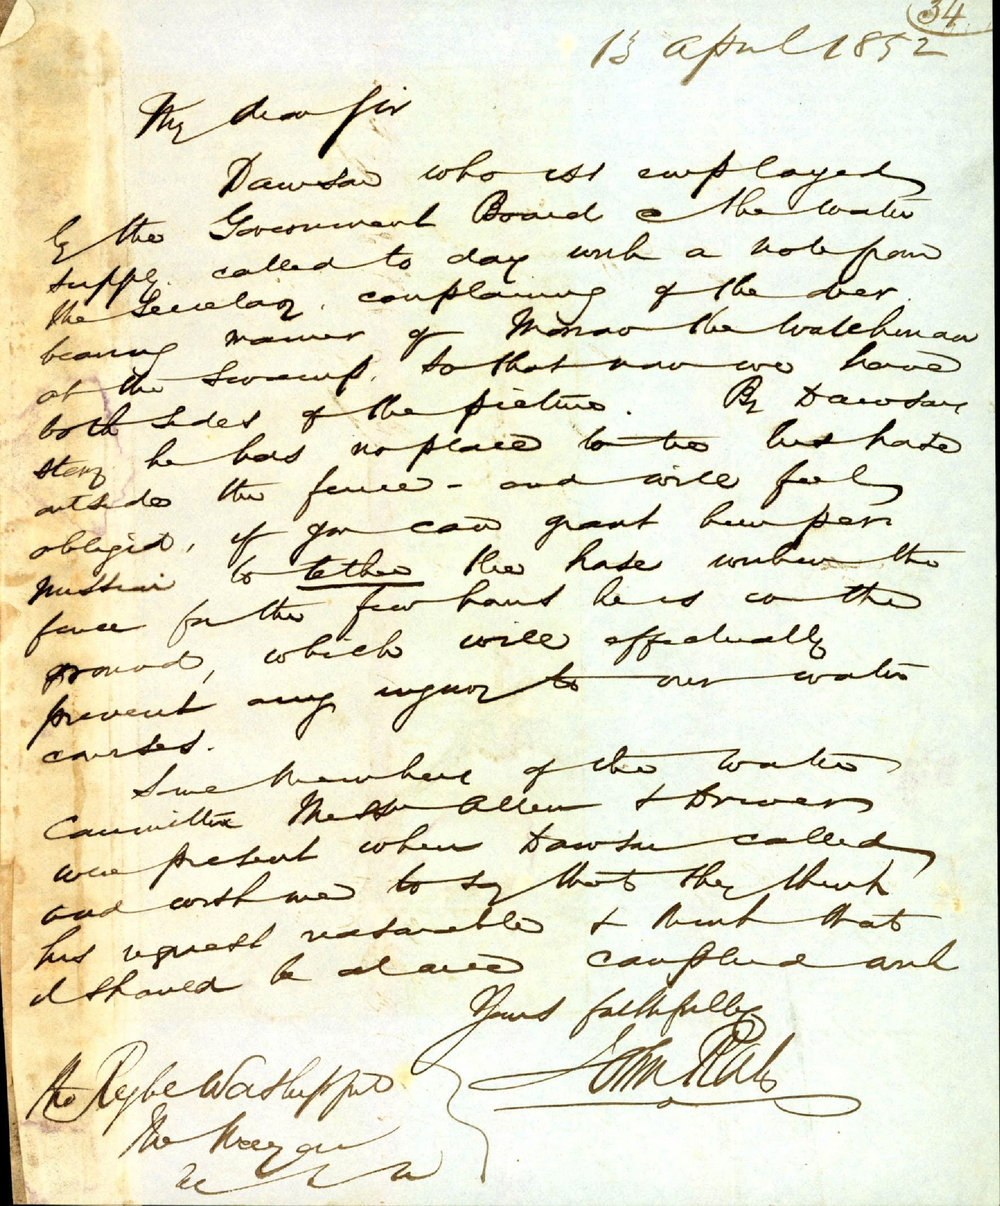 34
13 April 1852
My dear Sir
Dawson who is employed
by the Government Board of the Water
supply called to day with a note from
the Secretary, complaining of the over
bearing manner of the Watchman
at the Swamp, so that now we have
both sides of the picture. By Dawson
story he has no place to tie his horse
outside the fence - and will feel
obliged, if you can grant him per
mission to tether the horse within the
fence for the few hours he is on the
ground, which will effectually
prevent any injury to our water
courses.
Some Members of the Water
Committee Messrs Allen & Driver
were present when Dawson called,
and wish me to say that they think
his request reasonable & think that
it should be at once complied with
Yours faithfully
John
The Right Worshipful
The Mayor